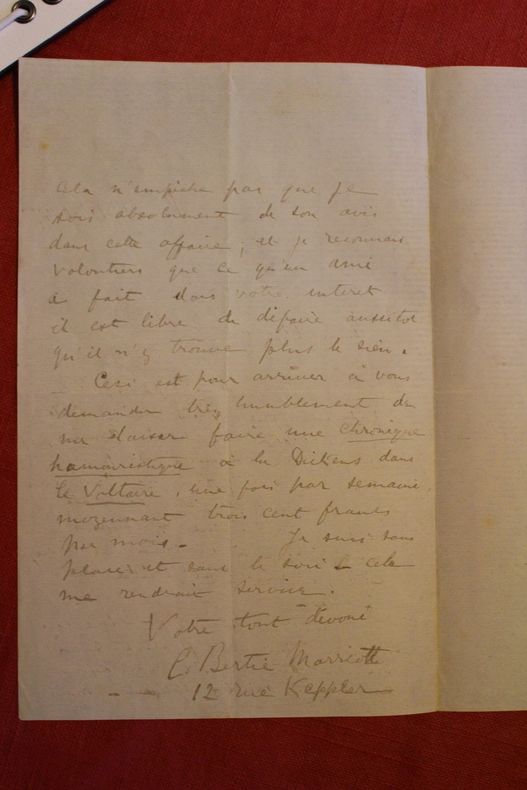 Cela n'empêche pas que je
sois absolument de son avis
dans cette affaire, et je reconnais
volontiers que ce qu'un ami
a fait dans votre interet
il est libre de défaire aussitot
qu'il n'y trouve plus le sien.
Ceci est pour arriver à vous
demander très humblement de
me laisser faire une chronique
humouristique à la Dickens dans
le Voltaire, une fois par semaine,
moyennant trois cent francs
par mois. Je suis sans
place et sans le sou & cela
me rendrait service.
Votre tout dévoué
C. Bertie Marriott
12 rue Keppler